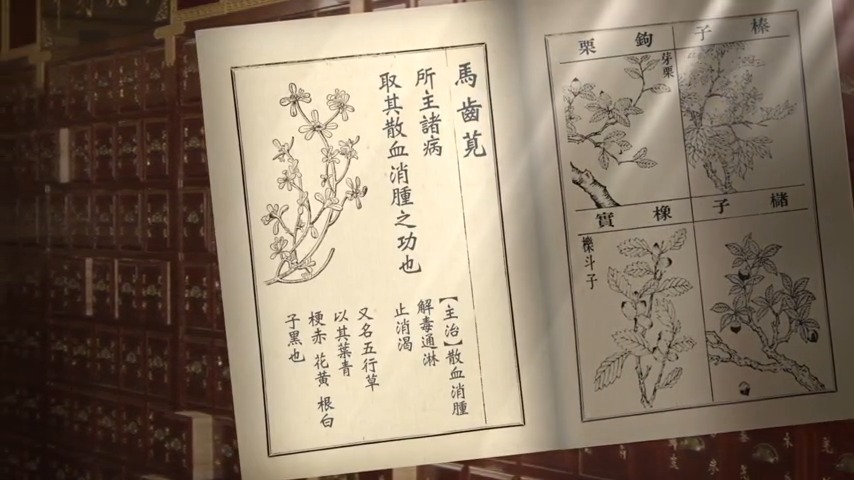 馬齒莧
所主諸病
取其散血消腫之功也
【主治】散血消腫
解毒通淋
止消渴
又名五行草
以其葉青
梗赤 花黃 根白
子黑也
榛子
鉤栗
櫧子
橡實
櫟斗子